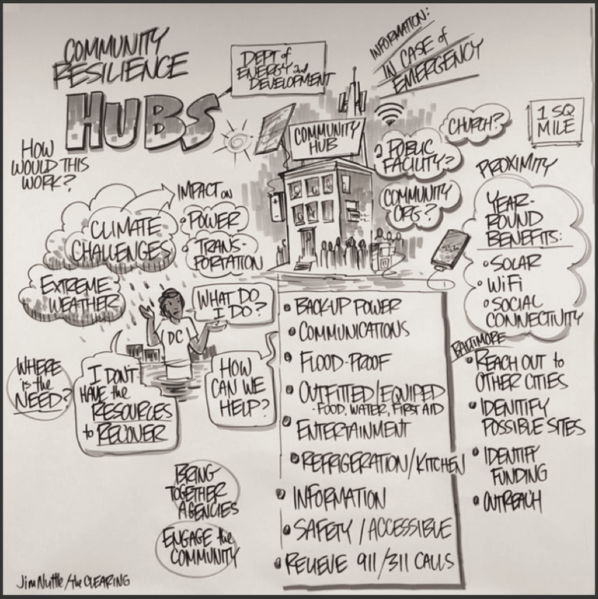 COMMUNITY
RESILIENCE
HUBS
DEPT of
ENERGY and
DEVELOPMENT
INFORMATION:
IN CASE of
EMERGENCY
HOW
WOULD THIS
WORK?
COMMUNITY
HUB
CHURCH?
PUBLIC
FACILITY?
COMMUNITY
ORG?
1 SQ
MILE
PROXIMITY
CLIMATE
CHALLENGES
IMPACT on
• POWER
• TRANS-
PORTATION
EXTREME
WEATHER
YEAR-
ROUND
BENEFITS:
• SOLAR
• WiFi
• SOCIAL
CONNECTIVITY
WHAT DO
I DO?
DC
WHERE
is the
NEED?
I DON'T
HAVE the
RESOURCES
to RECOVER
HOW
CAN WE
HELP?
• BACK-UP POWER
• COMMUNICATIONS
• FLOOD-PROOF
• OUTFITTED/EQUIPED
- FOOD, WATER, FIRST AID
• ENTERTAINMENT
• REFRIGERATION/KITCHEN
• INFORMATION
• SAFETY / ACCESSIBLE
• RELIEVE 911/311 CALLS
BALTIMORE
• REACH OUT to
OTHER CITIES
• IDENTIFY
POSSIBLE SITES
• IDENTIFY
FUNDING
• OUTREACH
BRING
TOGETHER
AGENCIES
ENGAGE the
COMMUNITY
Jim Nuttle/the CLEARING